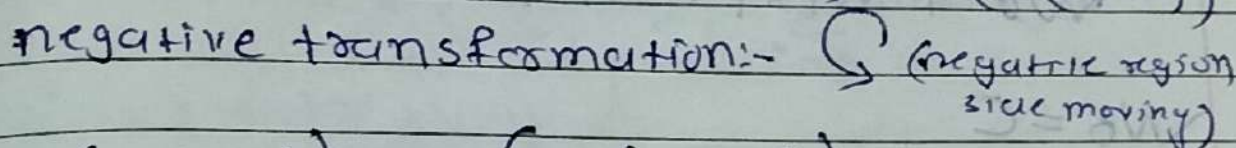 negative transformation:- (negative region
side moving)